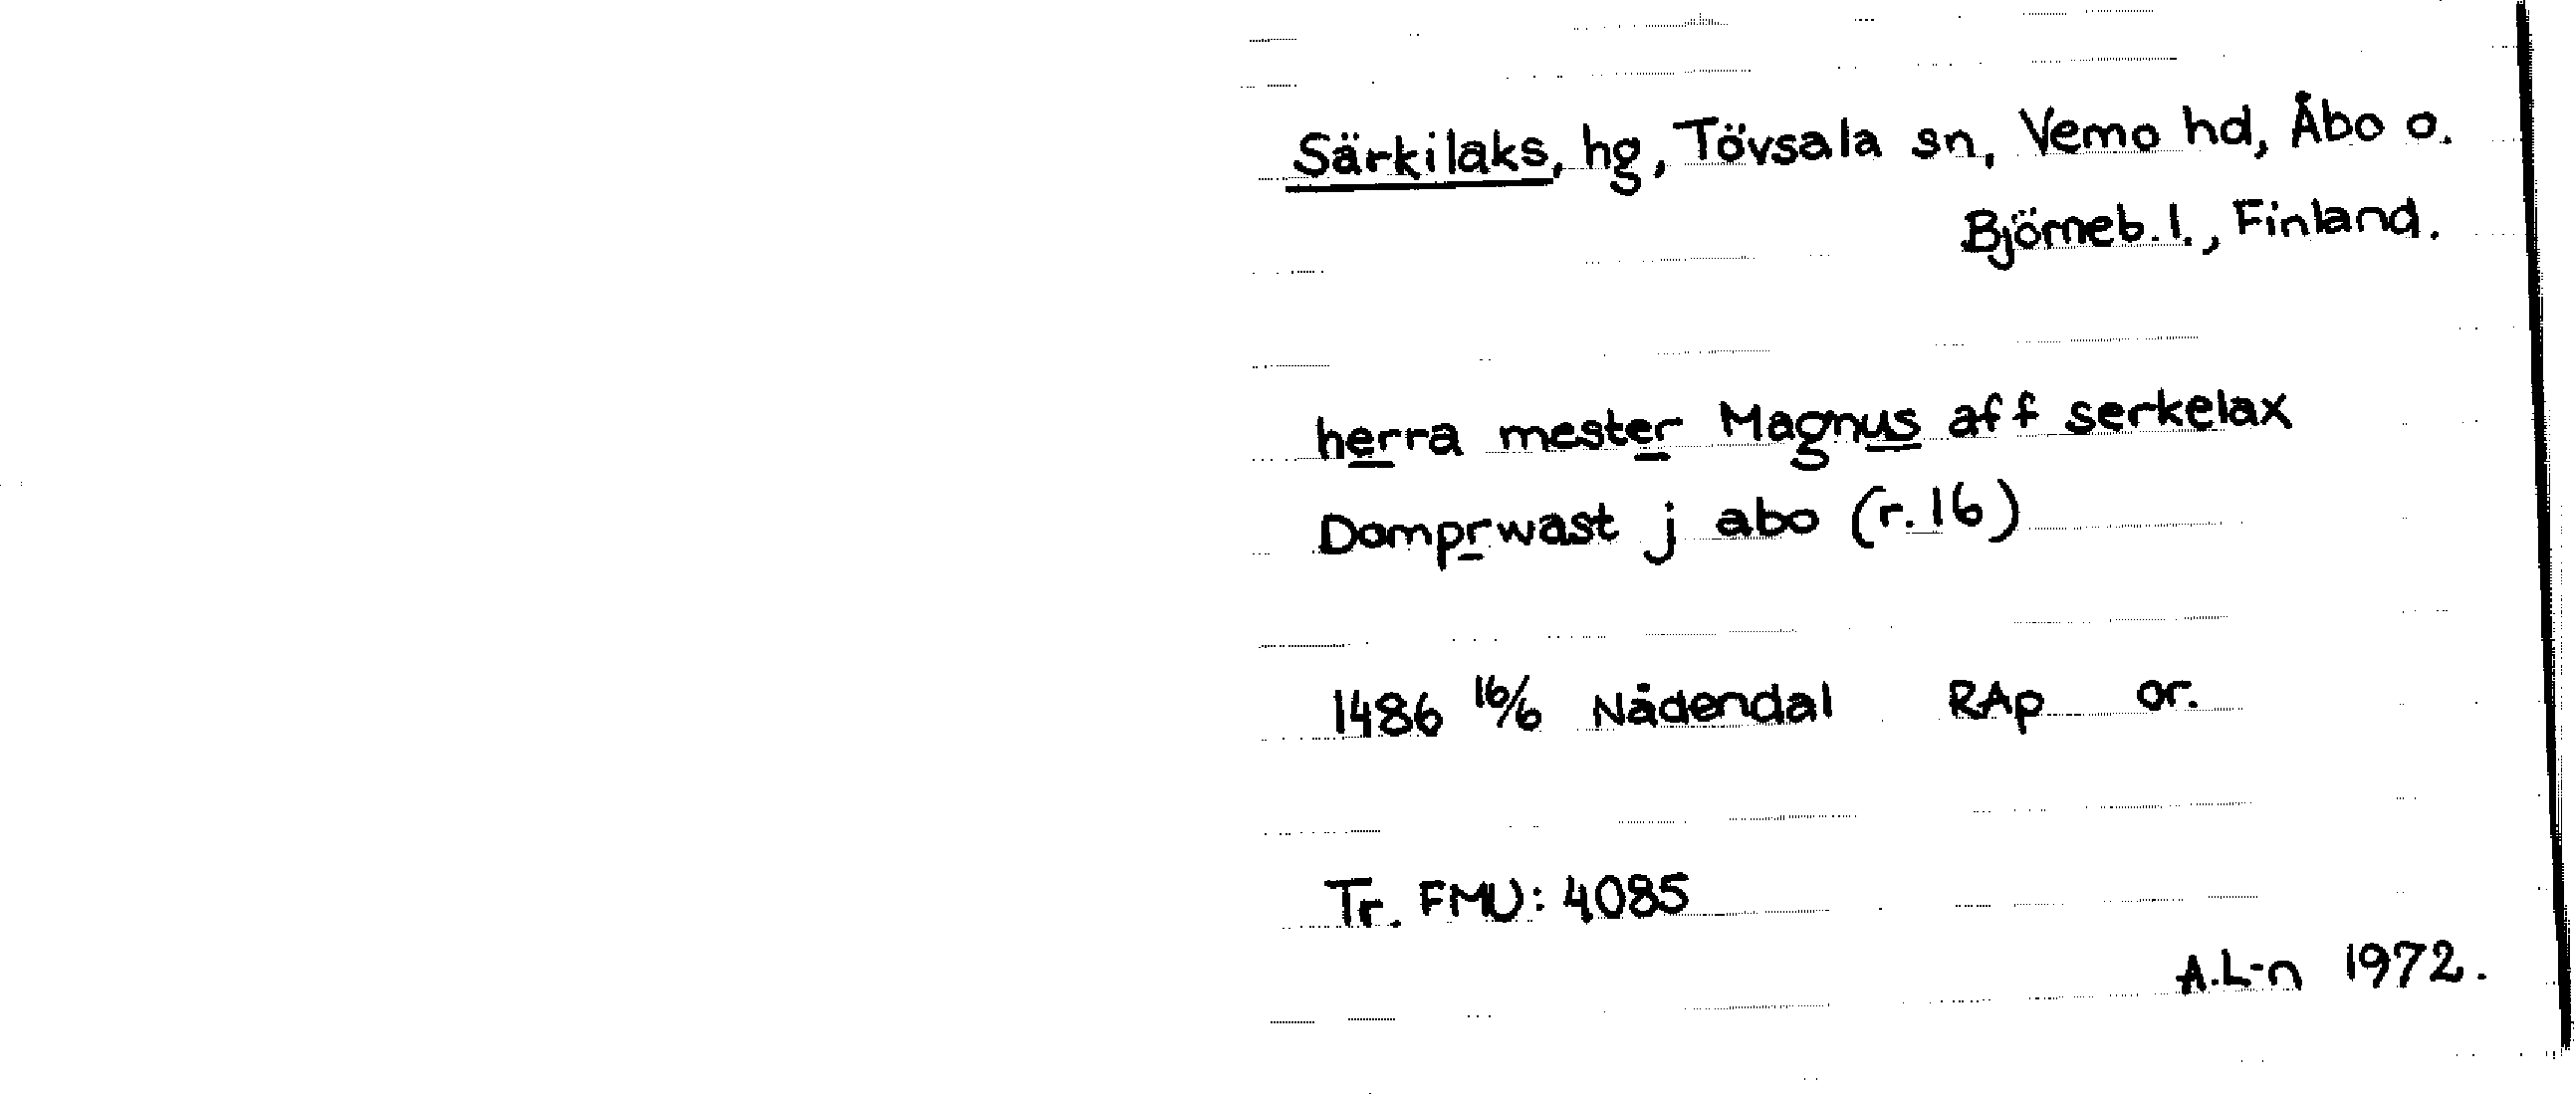 Särkilaks, hg, Tövsala sn, Vemo hd, Åbo o.
Björneb. l., Finland.
herra mester Magnus aff serkelax
Domprwast j abo (r. 16)
1486 16/6 Nådendal RAp or.
Tr. FMU: 4085
A.L-n 1972.